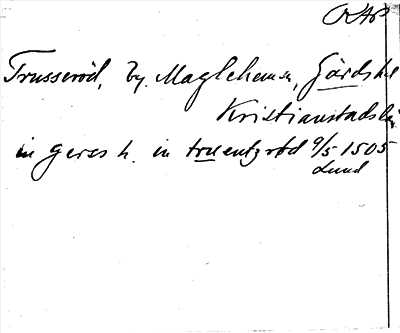 ORAP
Trusseröd, by. Maglehem sn, Gärds hd
Kristianstads län
in geres h. in truentzrød 9/5 1505
Lund